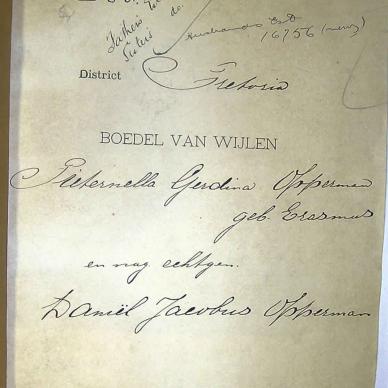 Father's
Sisters do.
Husbands Est
16756 (nieuw)
District Pretoria
BOEDEL VAN WIJLEN
Pieternella Gerdina Opperman
geb. Erasmus
en nag. echtgen.
Daniël Jacobus Opperman